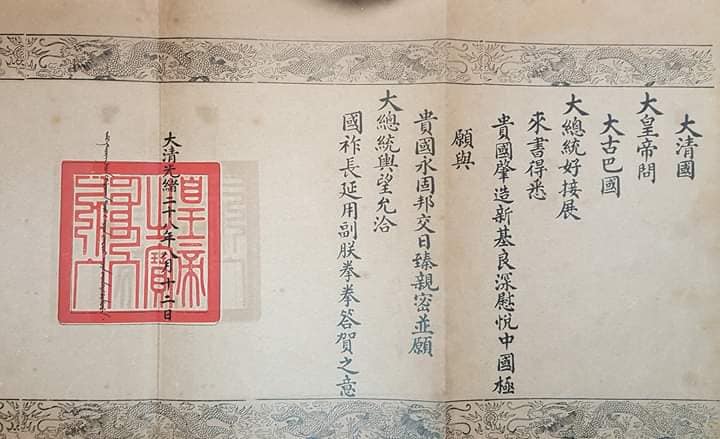 大清國
大皇帝問
大古巴國
大總統好接展
來書得悉
貴國肇造新基良深慰悅中國極
願與
貴國永固邦交日臻親密並願
大總統輿望允洽
國祚長延用副朕拳拳答賀之意
大清光緒二十八年八月十二日
皇帝之寶